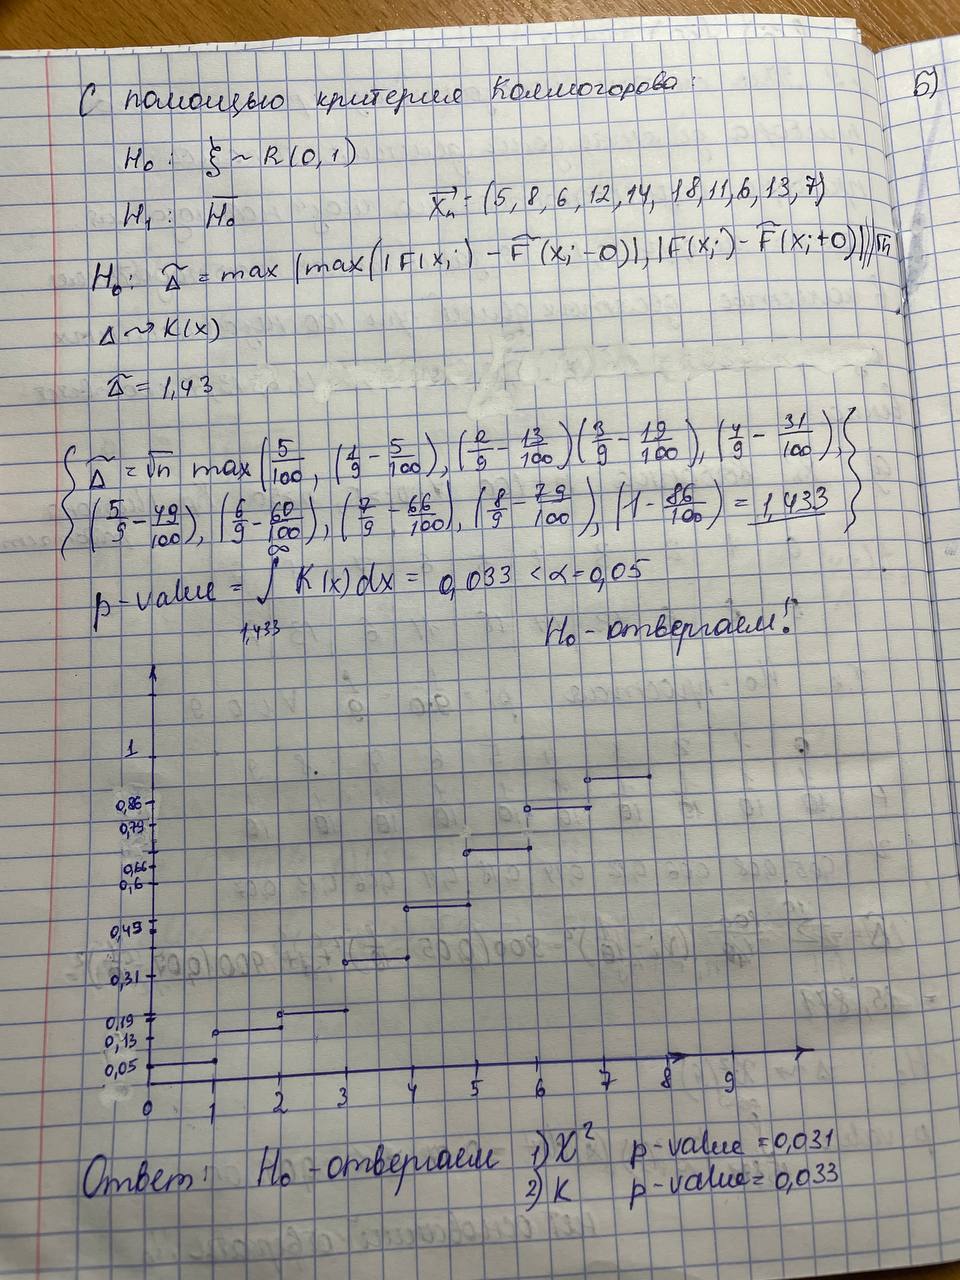 С помощью критерия Колмогорова:
б)
H₀ : ξ ~ R(0,1)
H₁ : H̅₀
x⃗ₙ = (5, 8, 6, 12, 14, 18, 11, 6, 13, 7)
H₀: Δ̃ = max (max(|F(xᵢ) - F̃(xᵢ-0)|, |F(xᵢ) - F̃(xᵢ+0)|))√n
Δ ~> K(x)
Δ̃ = 1,43
{ Δ̃ = √n max (5/100, (1/9 - 5/100), (2/9 - 13/100) (3/9 - 19/100), (4/9 - 31/100),
(5/9 - 49/100), (6/9 - 60/100), (7/9 - 66/100), (8/9 - 79/100), (1 - 86/100) = 1,433 }
p-value = ∫ 1,433 ∞ K(x)dx = 0,033 < α = 0,05
H₀ - отвергаем!
1
0,86
0,79
0,66
0,6
0,49
0,31
0,19
0,13
0,05
0 1 2 3 4 5 6 7 8 9
Ответ: H₀ - отвергаем 1) X² p-value = 0,031
2) K p-value = 0,033